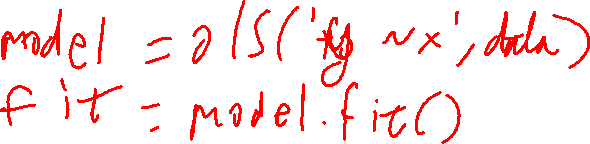 model = ols('y ~ x', data)
fit = model.fit()